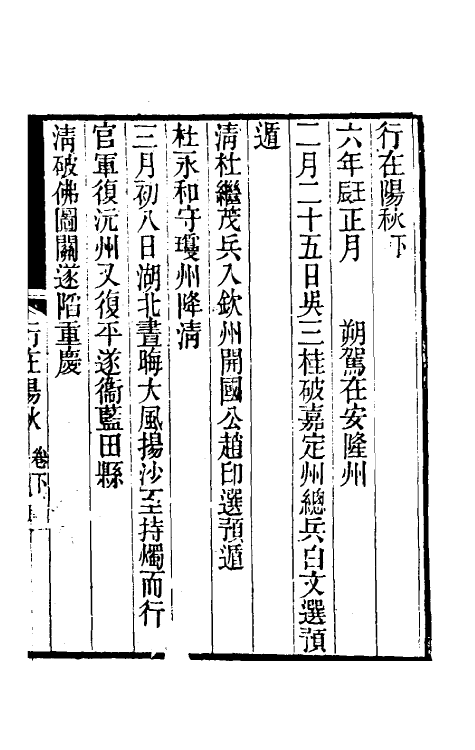 行在陽秋下
六年壬辰正月　　朔駕在安隆州
二月二十五日吳三桂破嘉定州總兵白文選預
遁
清杜繼茂兵入欽州開國公趙印選預遁
杜永和守瓊州降清
三月初八日湖北晝晦大風揚沙至持燭而行
官軍復沅州又復平遂衞藍田縣
清破佛圖關遂陷重慶
行在陽秋　卷下